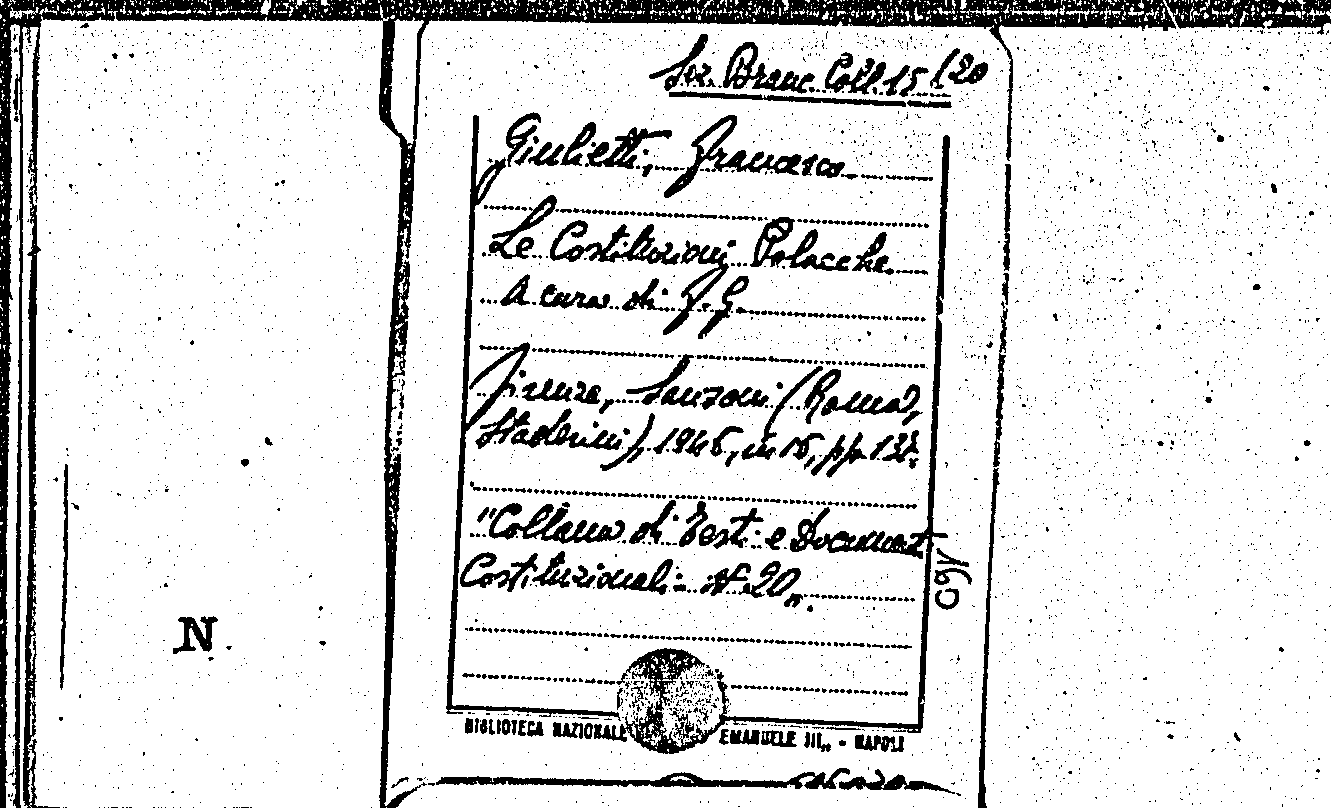 Sez. Branc. Coll. 15/20
Giulietti, Francesco.
Le Costituzioni Polacche.
A cura di F. G.
Firenze, Sansoni (Roma,
Staderini), 1946, in 16, pp. 132.
"Collana di Testi e Documenti
Costituzionali - N. 20„.
160
N
BIBLIOTECA NAZIONALE EMANUELE III„ - NAPOLI